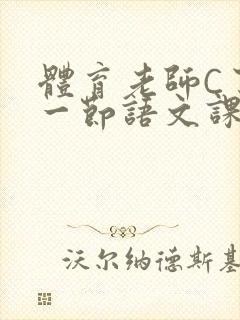 體育老師C
一節語文課
沃尔纳德斯基